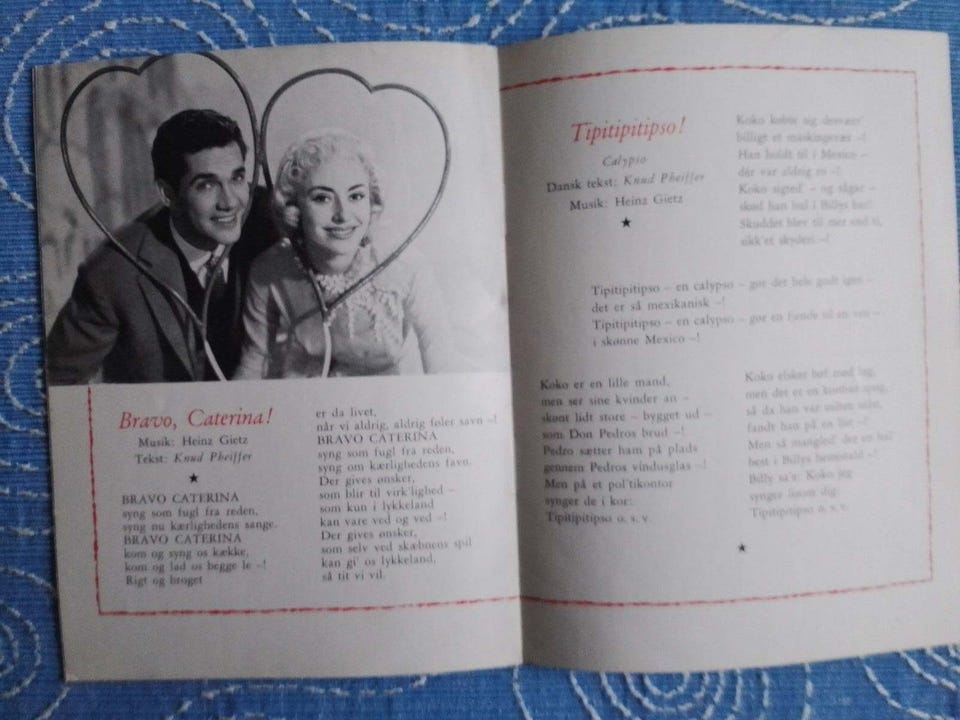 Bravo, Caterina!
Musik: Heinz Gietz
Tekst: Knud Pheiffer
BRAVO CATERINA
syng som fugl fra reden,
syng nu kærlighedens sange.
BRAVO CATERINA
kom og syng os kække,
kom og lad os begge le –!
Rigt og broget
er da livet,
når vi aldrig, aldrig føler savn –!
BRAVO CATERINA
syng som fugl fra reden,
syng om kærlighedens favn.
Der gives ønsker,
som blir til virk'lighed –
som kun i lykkeland
kan vare ved og ved –!
Der gives ønsker,
som selv ved skæbnens spil
kan gi' os lykkeland,
så tit vi vil.
Tipitipitipso!
Calypso
Dansk tekst: Knud Pheiffer
Musik: Heinz Gietz
Koko købte sig desvær'
billigt et maskingevær –!
Han holdt til i Mexico –
dér var aldrig ro –!
Koko sigted' – og sågar –
skød han hul i Billys bar!
Skuddet blev til mer end ti,
sikk'et skyderi –!
Tipitipitipso – en calypso – gør det hele godt igen –
det er så mexikanisk –!
Tipitipitipso – en calypso – gør en fjende til en ven –
i skønne Mexico –!
Koko er en lille mand,
men ser sine kvinder an –
skønt lidt store – bygget ud –
som Don Pedros brud –!
Pedro sætter ham på plads
gennem Pedros vindusglas –!
Men på et pol'tikontor
synger de i kor:
Tipitipitipso o. s. v.
Koko elsker bøf med løg,
men det er en kostbar spøg,
så da han var sulten
fandt han på en
Men så mangled' der en
best i Billys
Billy sa'r: Koko jeg
synger foran dig:
Tipitipitipso o. s. v.